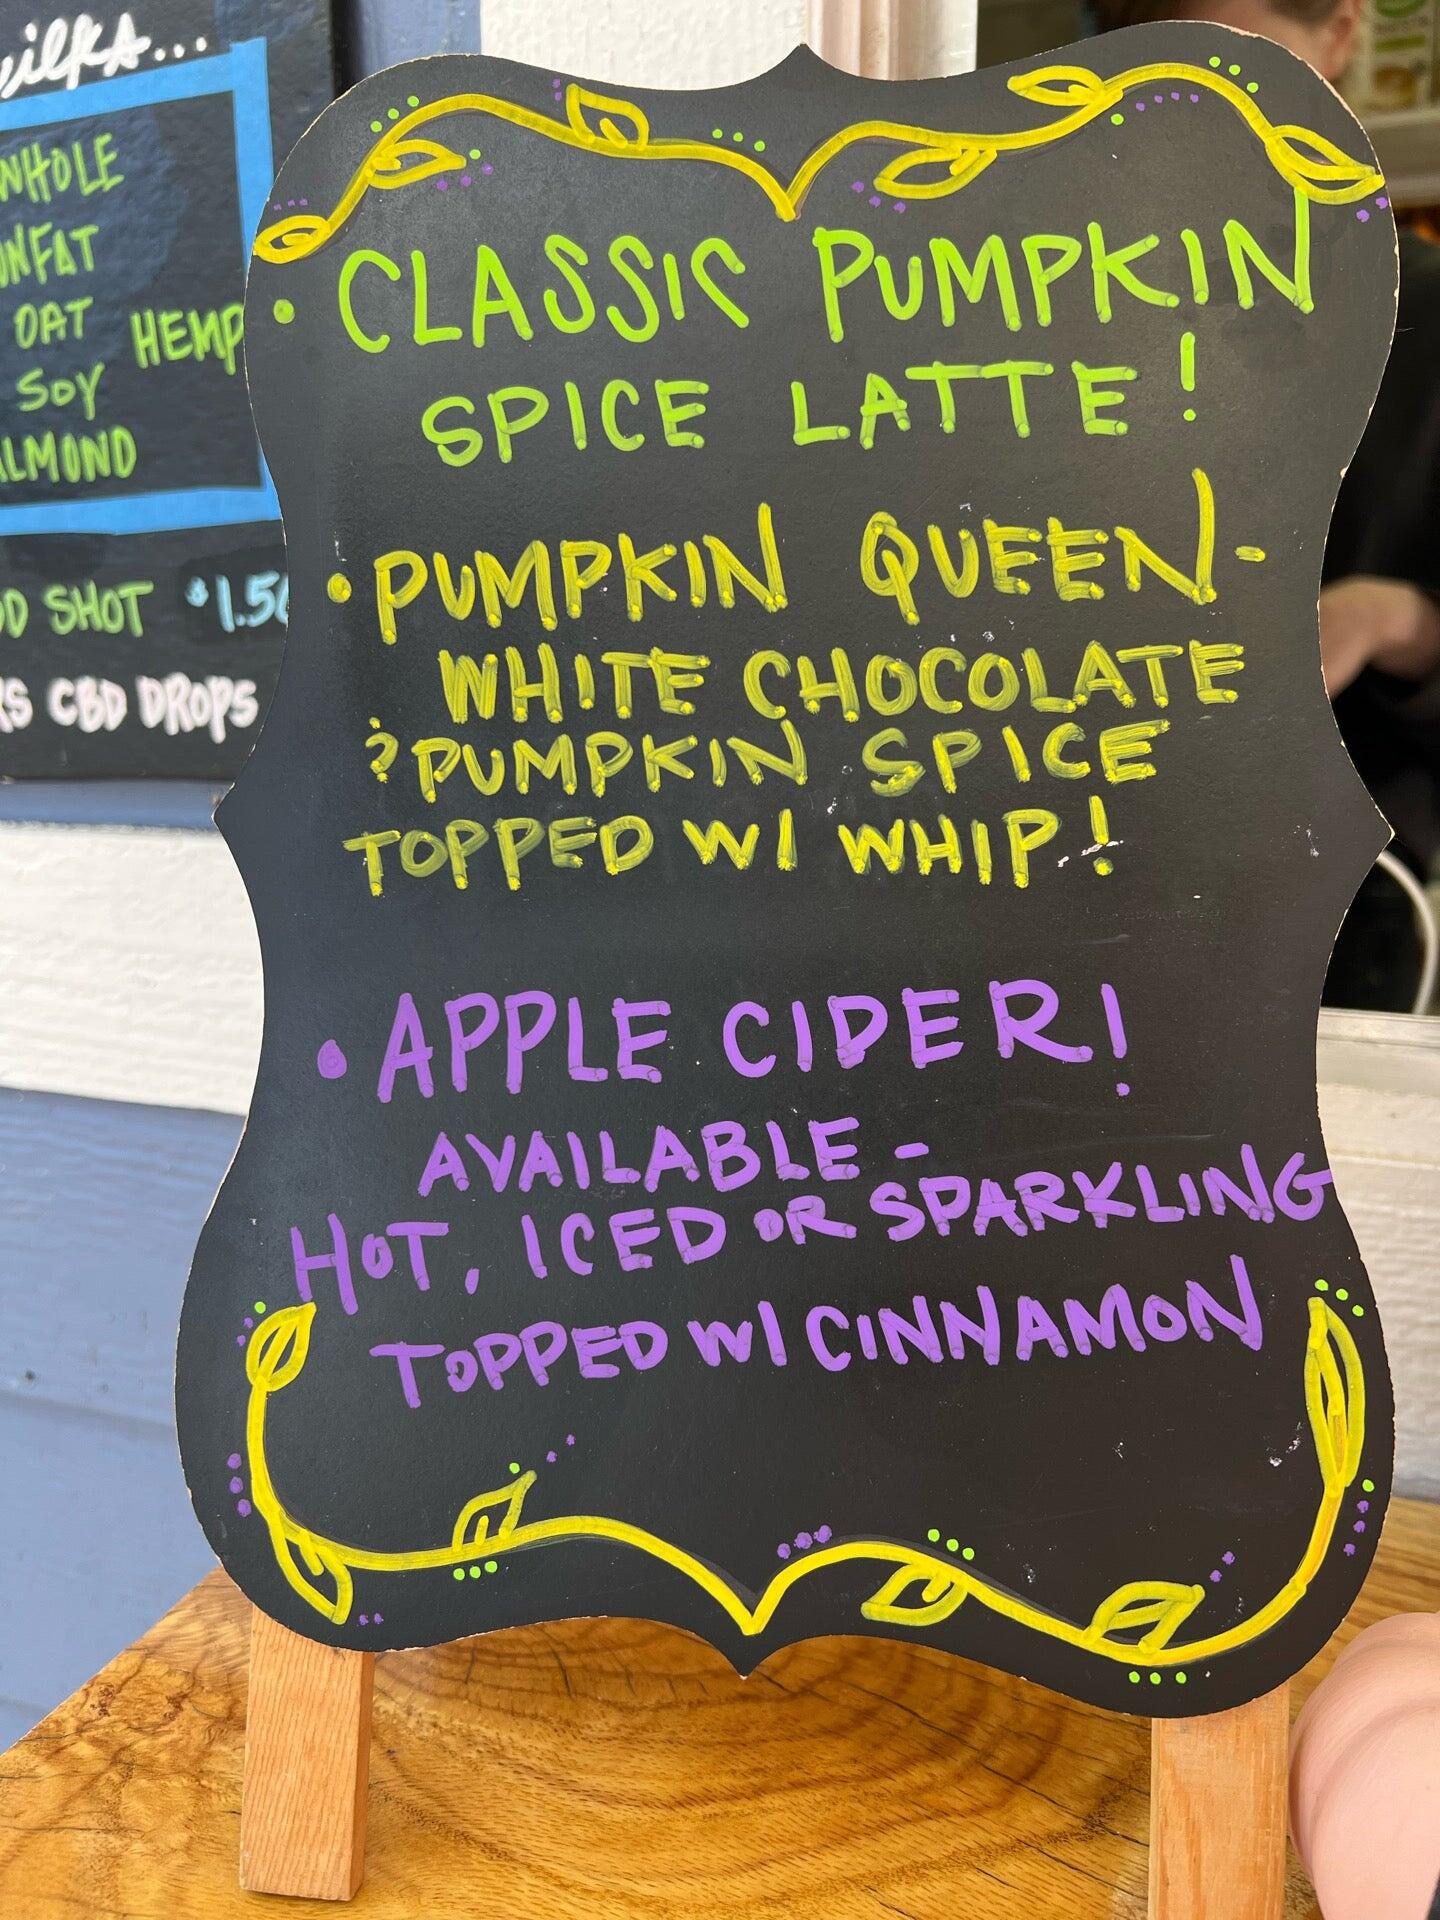 WHOLE
OAT HEMP
SOY
ALMOND
SHOT $1.50
CBD DROPS
• CLASSIC PUMPKIN
SPICE LATTE!
• PUMPKIN QUEEN-
WHITE CHOCOLATE
& PUMPKIN SPICE
TOPPED W/ WHIP!
• APPLE CIDER!
AVAILABLE -
HOT, ICED OR SPARKLING
TOPPED W/ CINNAMON